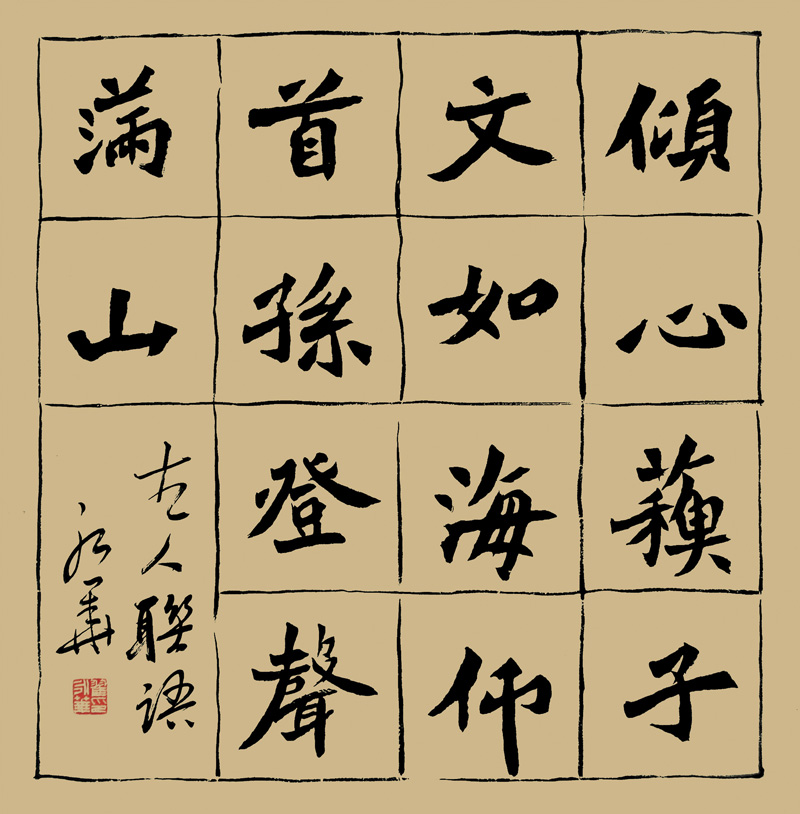 傾心蘓子
文如海仰
首孫登聲
滿山
古人聯語
永華